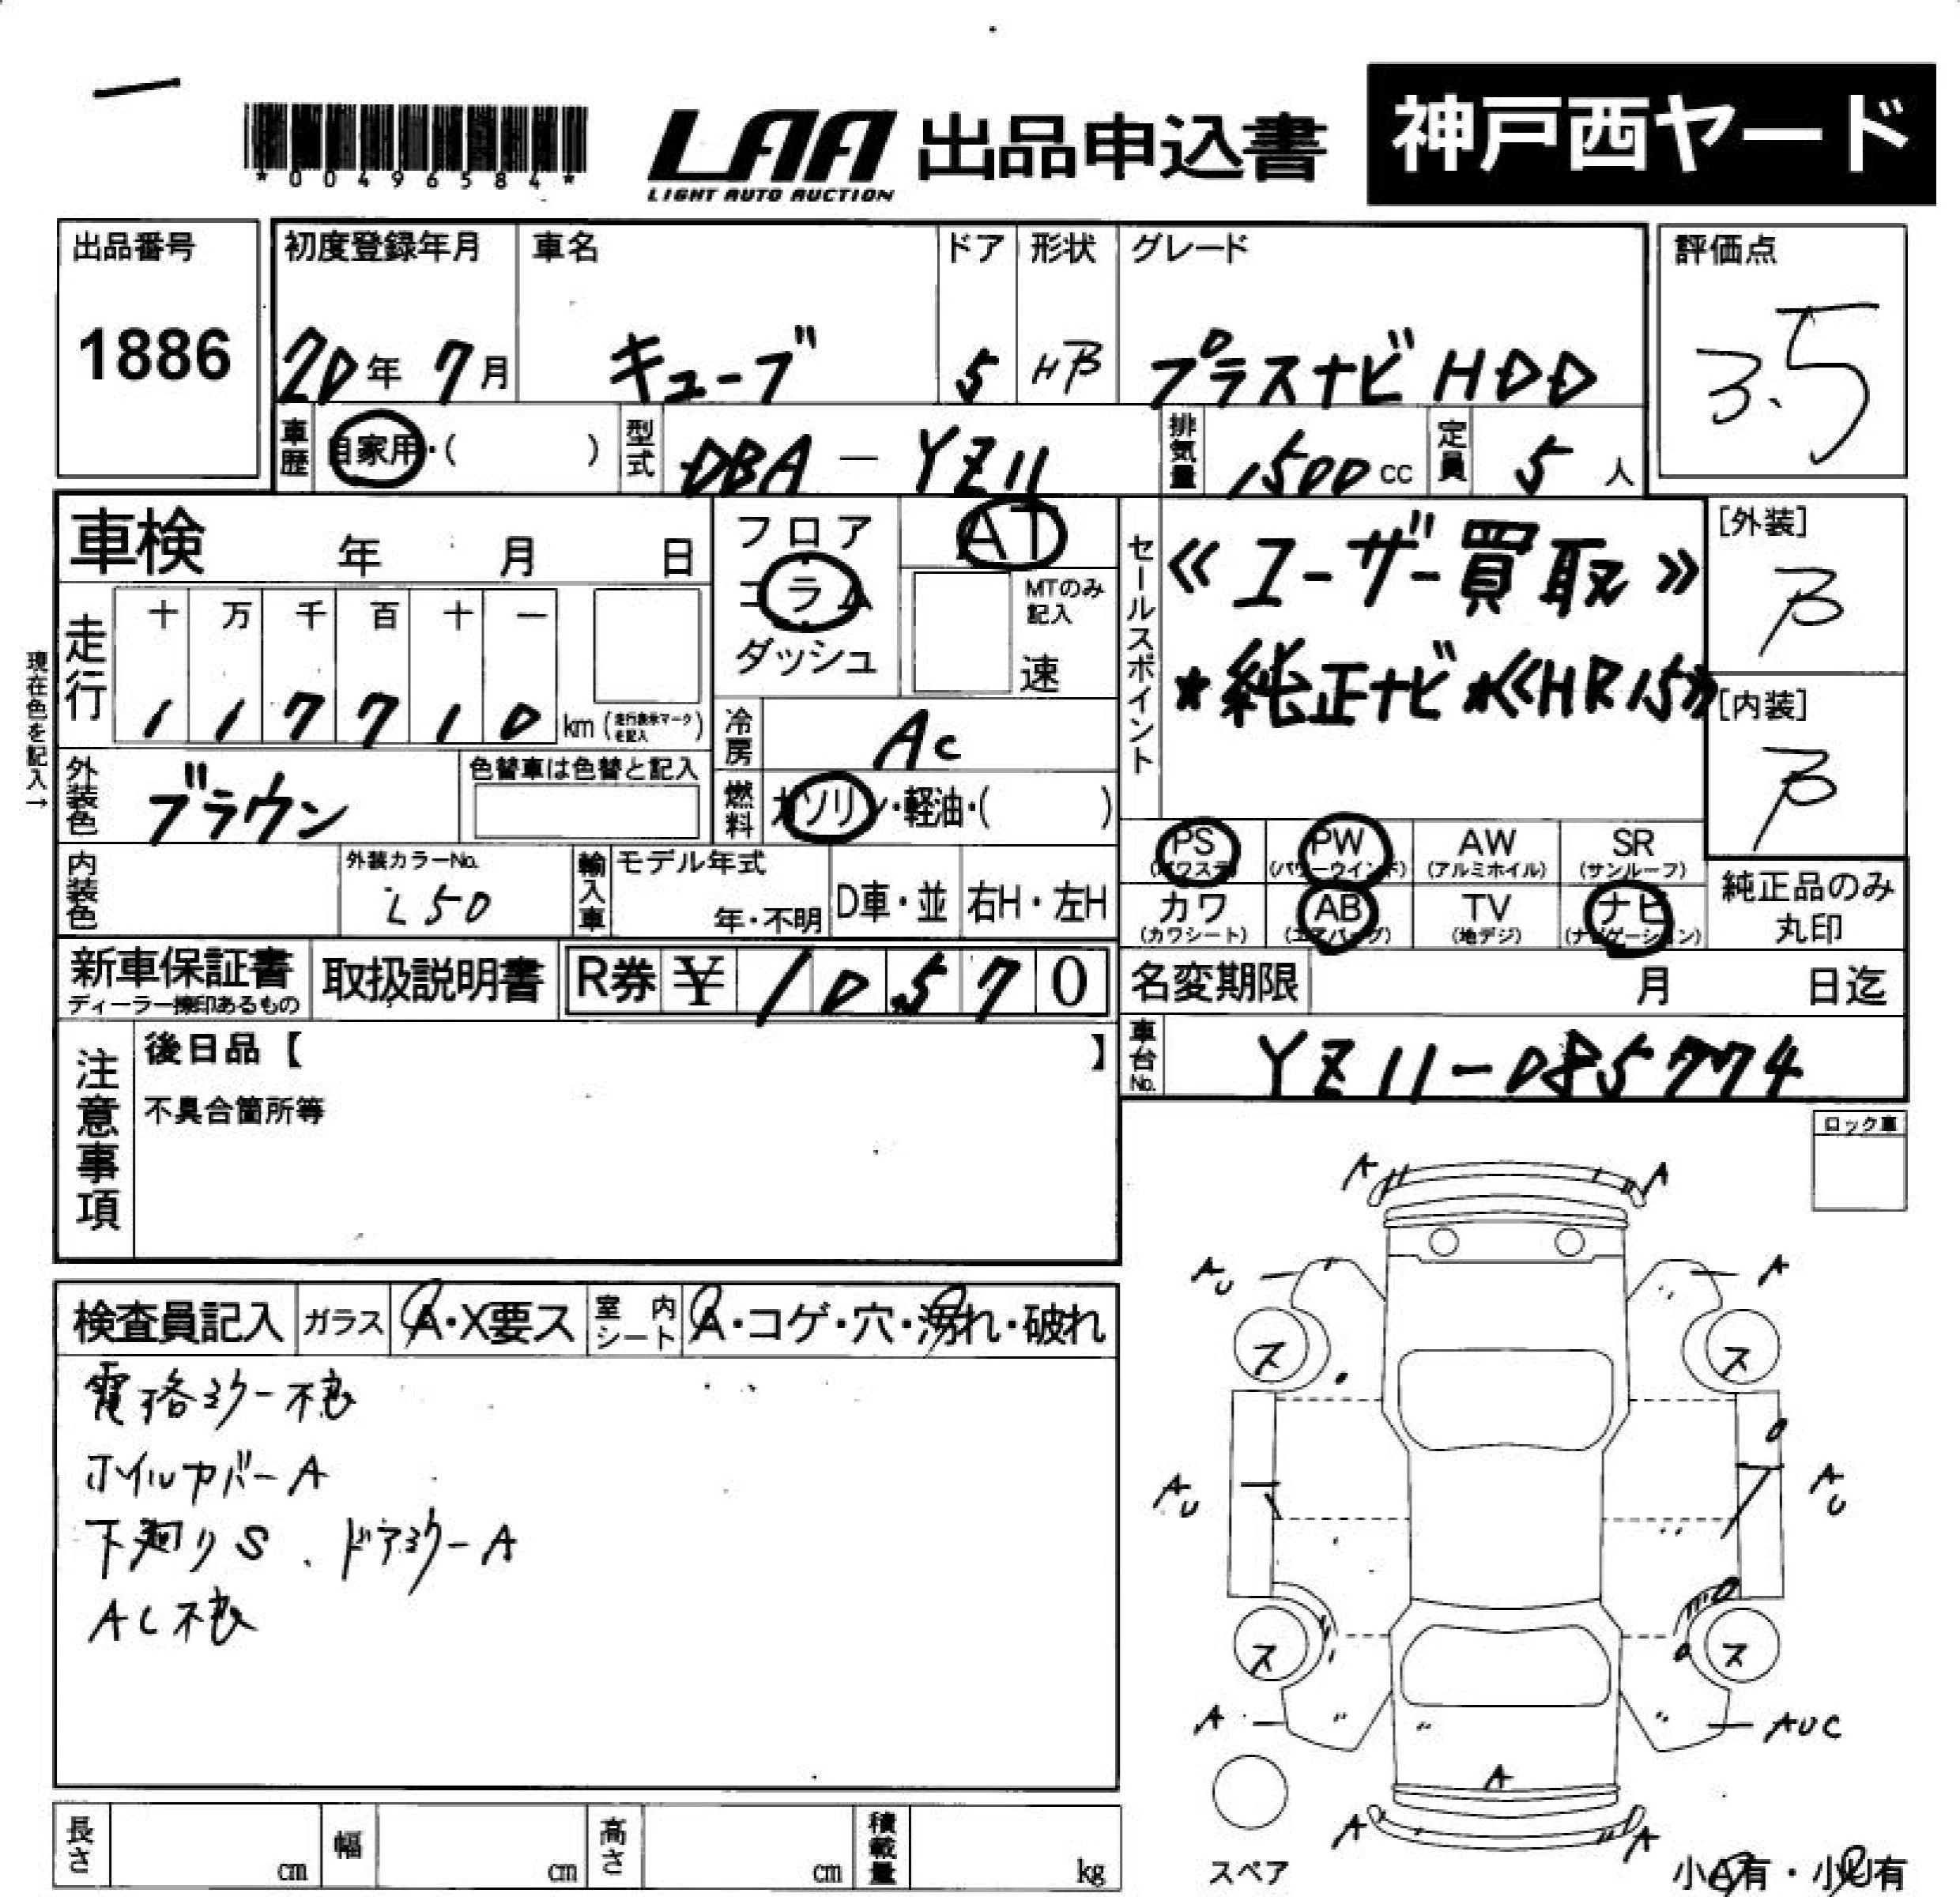 *00496584*
LAA 出品申込書 神戸西ヤード
LIGHT AUTO AUCTION
出品番号 初度登録年月 車名 ドア 形状 グレード 評価点
1886 20年 7月 キューブ 5 HB プラスナビHDD 3.5
車歴 自家用・( ) 型式 DBA-YZ11 排気量 1500cc 定員 5人
車検 年 月 日 フロア AT
コラム MTのみ記入
ダッシュ 速
セールスポイント 《ユーザー買取》
*純正ナビ*《HR15》
[外装]
B
[内装]
B
現在色を記入→
走行 十 万 千 百 十 一
1 1 7 7 1 0 km (走行表示マークを記入)
冷房 AC
外装色 ブラウン 色替車は色替と記入
燃料 ガソリン・軽油・( )
PS (パワステ) PW (パワーウインド) AW (アルミホイル) SR (サンルーフ)
内装色 外装カラーNo. L50 輸入車 モデル年式 年・不明 D車・並 右H・左H
カワ (カワシート) AB (エアバッグ) TV (地デジ) ナビ (ナビゲーション)
純正品のみ
丸印
新車保証書 取扱説明書 R券 ¥ 1 0 5 7 0
ディーラー捺印あるもの
名変期限 月 日迄
車台No. YZ11-085774
注意事項 後日品【 】
不具合箇所等
ロック車
検査員記入 ガラス A・X要ス 室内シート A・コゲ・穴・汚れ・破れ
電格ミラー不良
ホイルカバーA
下廻りS、ドアミラーA
AC不良
A A
AU A
ス ス
AU AU
ス ス
A AUC
A
A A
スペア
小A有・小U有
長さ cm 幅 cm 高さ cm 積載量 kg